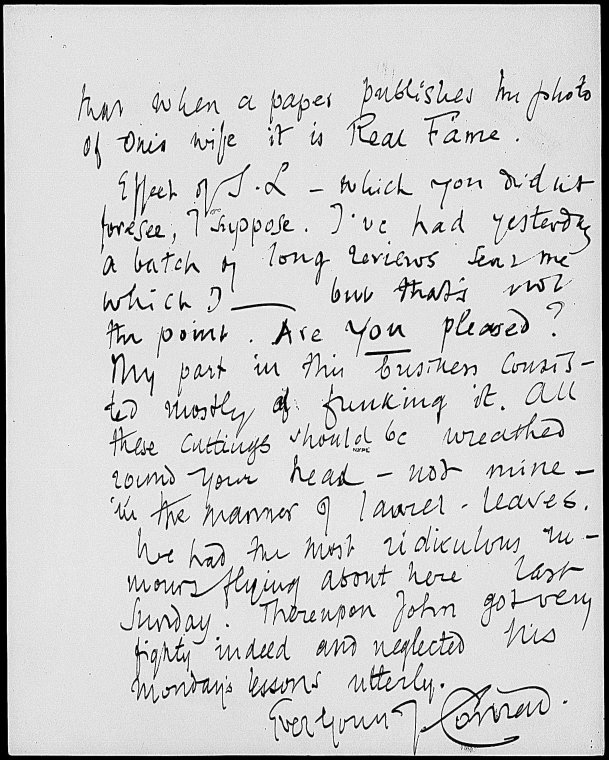 that when a paper publishes the photo
of one's wife it is Real Fame.
Effect of S.L – which you did not
foresee, I suppose. I've had yesterday
a batch of long reviews sent me
which I —— but that's not
the point. Are you pleased?
My part in this business consis-
ted mostly of funking it. All
these cuttings should be wreathed
round your head – not mine –
in the manner of laurel-leaves.
We had the most ridiculous ru-
mours flying about here last
Sunday. Thereupon John got very
fighty indeed and neglected his
Monday's lessons utterly.
Ever yours J. Conrad.